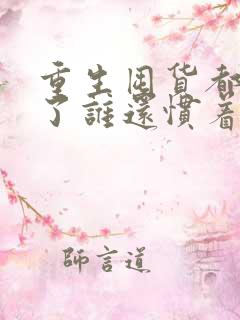 重生囤货都
了誰還慣着
師言道